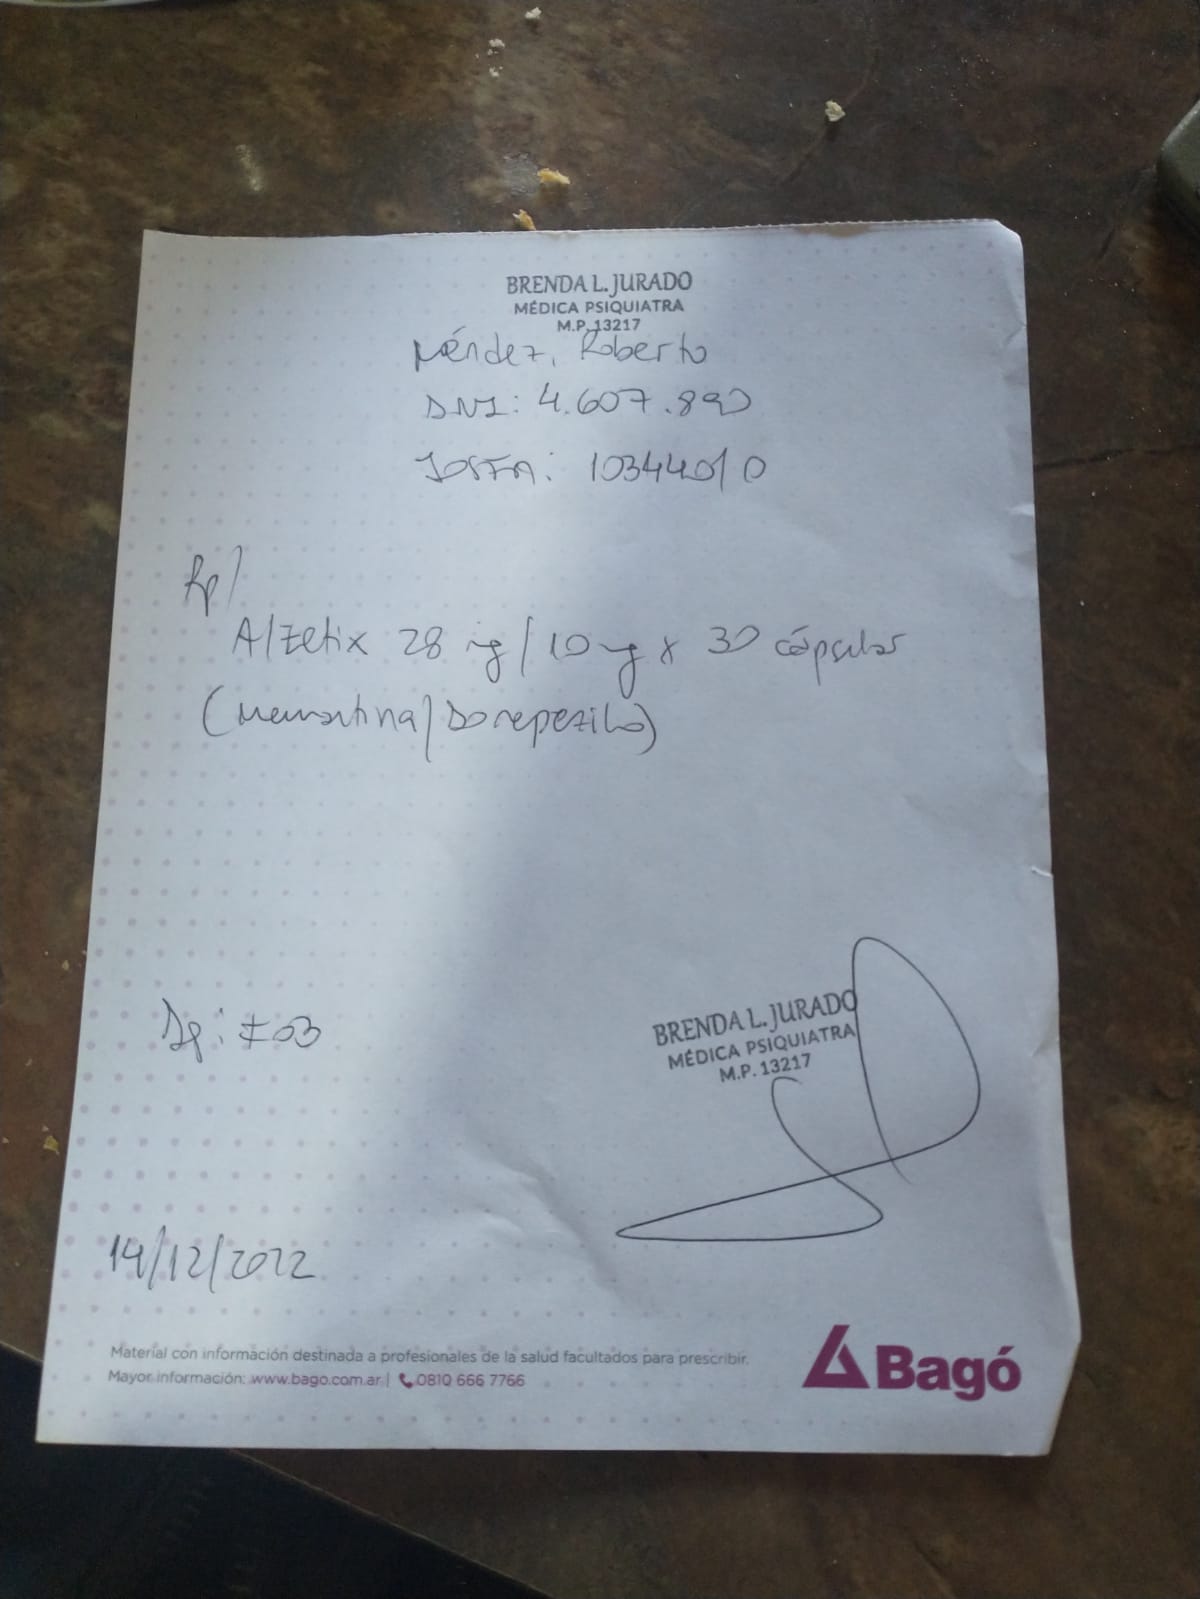 BRENDA L. JURADO
MÉDICA PSIQUIATRA
M.P. 13217
Méndez, Roberto
DNI: 4.607.890
IOSFA: 103440/0
Rp/
Alzetix 28 mg/10 mg x 30 cápsulas
(Memantina/Donepezilo)
BRENDA L. JURADO
MÉDICA PSIQUIATRA
M.P. 13217
Dg: F03
14/12/2022
Material con información destinada a profesionales de la salud facultados para prescribir.
Mayor información: www.bago.com.ar | 0810 666 7766
Bagó